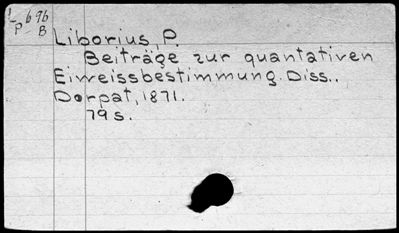 L 676
P B
Liborius, P.
Beiträge zur quantativen
Eiweissbestimmung. Diss..
Dorpat, 1871.
79 s.